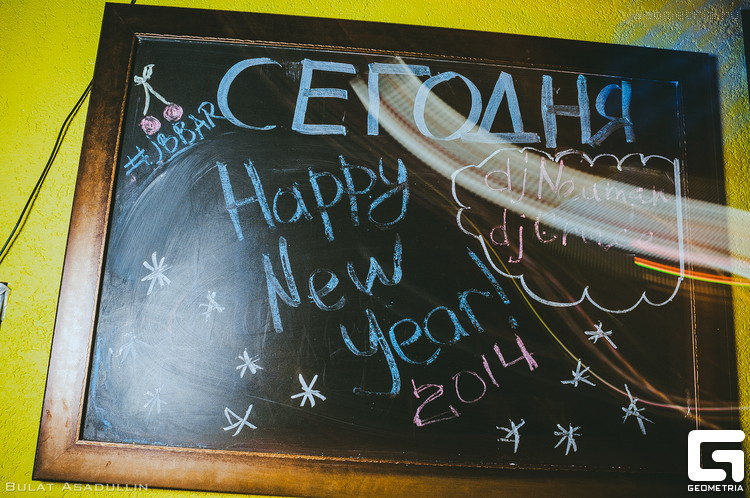 СЕГОДНЯ
#JBBAR
Happy
New
Year!
2014
dj Nauman
dj
BULAT ASADULLIN
GEOMETRIA